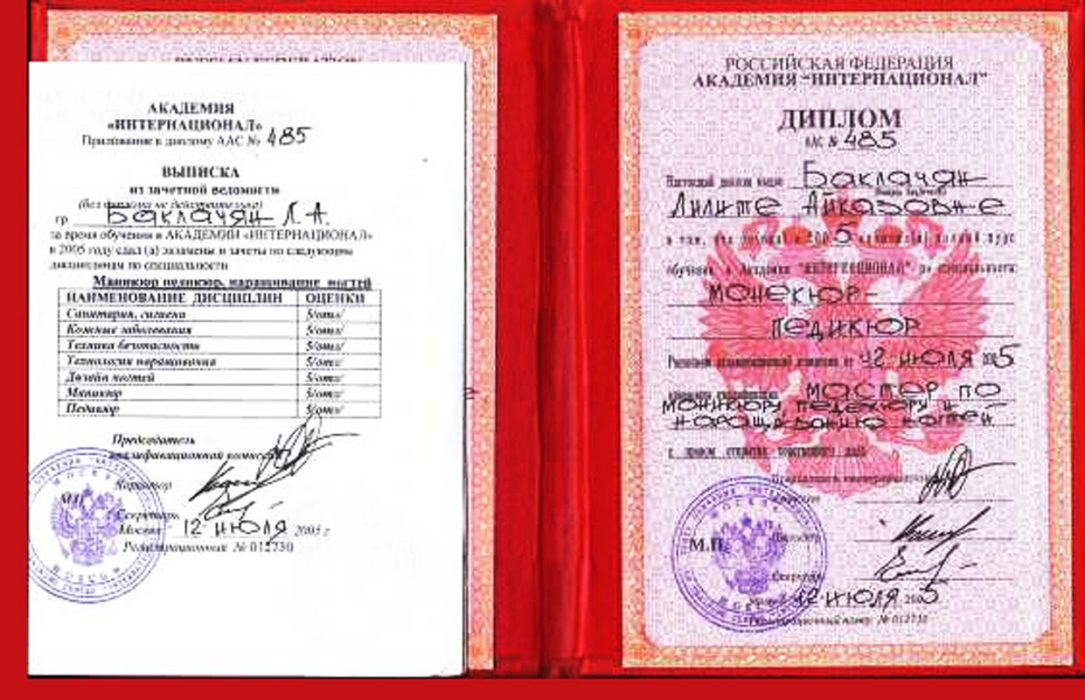 АКАДЕМИЯ
«ИНТЕРНАЦИОНАЛ»
Приложение к диплому ААС № 485
ВЫПИСКА
из зачетной ведомости
(без диплома не действительна)
гр. Баклачян Л.А.
за время обучения в АКАДЕМИИ «ИНТЕРНАЦИОНАЛ»
в 2005 году сдал (а) экзамены и зачеты по следующим
дисциплинам по специальности
Маникюр педикюр, наращивание ногтей
НАИМЕНОВАНИЕ ДИСЦИПЛИН ОЦЕНКИ
Санитария, гигиена 5/отл/
Кожные заболевания 5/отл/
Техника безопасности 5/отл/
Технология наращивания 5/отл/
Дизайн ногтей 5/отл/
Маникюр 5/отл/
Педикюр 5/отл/
Председатель
квалификационной комиссии
Директор
М.П.
Секретарь
Москва 12 июля 2005 г
Регистрационный № 012730
РОССИЙСКАЯ ФЕДЕРАЦИЯ
АКАДЕМИЯ "ИНТЕРНАЦИОНАЛ"
ДИПЛОМ
ААС № 485
Настоящий диплом выдан Баклачян
Лилите Айказовне
в том, что 2005 полный курс
обучения в Академии "ИНТЕРНАЦИОНАЛ" по специальности
монекюр-
педикюр
Решением комиссии от 12 июля 2005
мастер по
моникюру, педекюру и
наращиванию ногтей
с правом открытия
М.П.
Секретарь
12 июля 2005
Регистрационный номер № 012730
МОСКВА